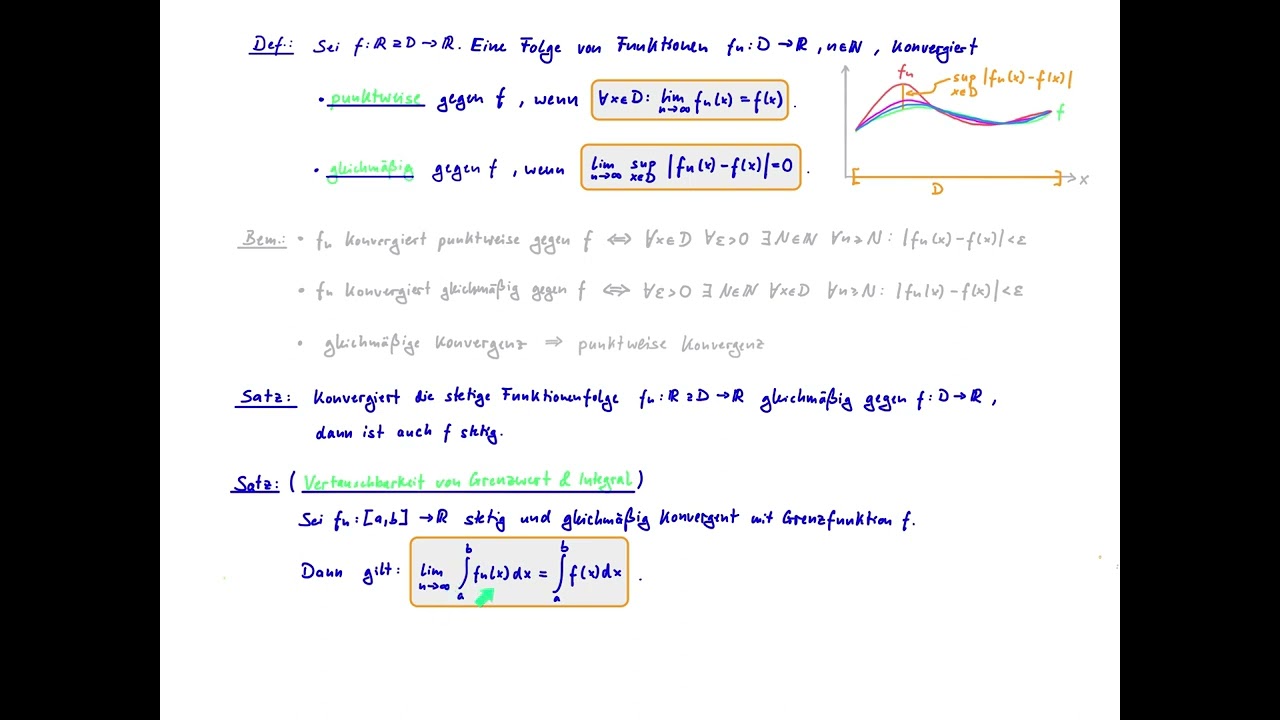 Def.: Sei f: ℝ ⊇ D → ℝ. Eine Folge von Funktionen fₙ: D → ℝ, n∈ℕ, konvergiert
• punktweise gegen f, wenn ∀x∈D: lim_{n→∞} fₙ(x) = f(x).
• gleichmäßig gegen f, wenn lim_{n→∞} sup_{x∈D} |fₙ(x) − f(x)| = 0.
fₙ
sup_{x∈D} |fₙ(x) − f(x)|
f
x
D
Bem.: • fₙ konvergiert punktweise gegen f ⟺ ∀x∈D ∀ε>0 ∃N∈ℕ ∀n≥N: |fₙ(x) − f(x)| < ε
• fₙ konvergiert gleichmäßig gegen f ⟺ ∀ε>0 ∃N∈ℕ ∀x∈D ∀n≥N: |fₙ(x) − f(x)| < ε
• gleichmäßige Konvergenz ⇒ punktweise Konvergenz
Satz: Konvergiert die stetige Funktionenfolge fₙ: ℝ ⊇ D → ℝ gleichmäßig gegen f: D → ℝ,
dann ist auch f stetig.
Satz: (Vertauschbarkeit von Grenzwert & Integral)
Sei fₙ: [a,b] → ℝ stetig und gleichmäßig konvergent mit Grenzfunktion f.
Dann gilt: lim_{n→∞} ∫_a^b fₙ(x) dx = ∫_a^b f(x) dx.